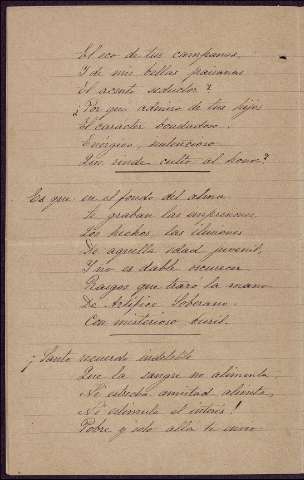 El eco de tus campanas,
Y de mis bellas paisanas
El acento seductor?
¿Por que admiro de tus hijos
El carácter bondadoso,
Enérgico,
Que rinde culto al honor?
Es que en el fondo del alma
Se graban las impresiones
Los hechos, las ilusiones
De aquella edad juvenil,
Y no es dable oscurecer
Rasgos que trazó la mano
De Artífice Soberano
Con misterioso buril.
¡Santo recuerdo indeleble
Que la sangre no alimenta,
Ni estrecha amistad alienta,
Ni estimula el interés!
Pobre y solo allá te envio